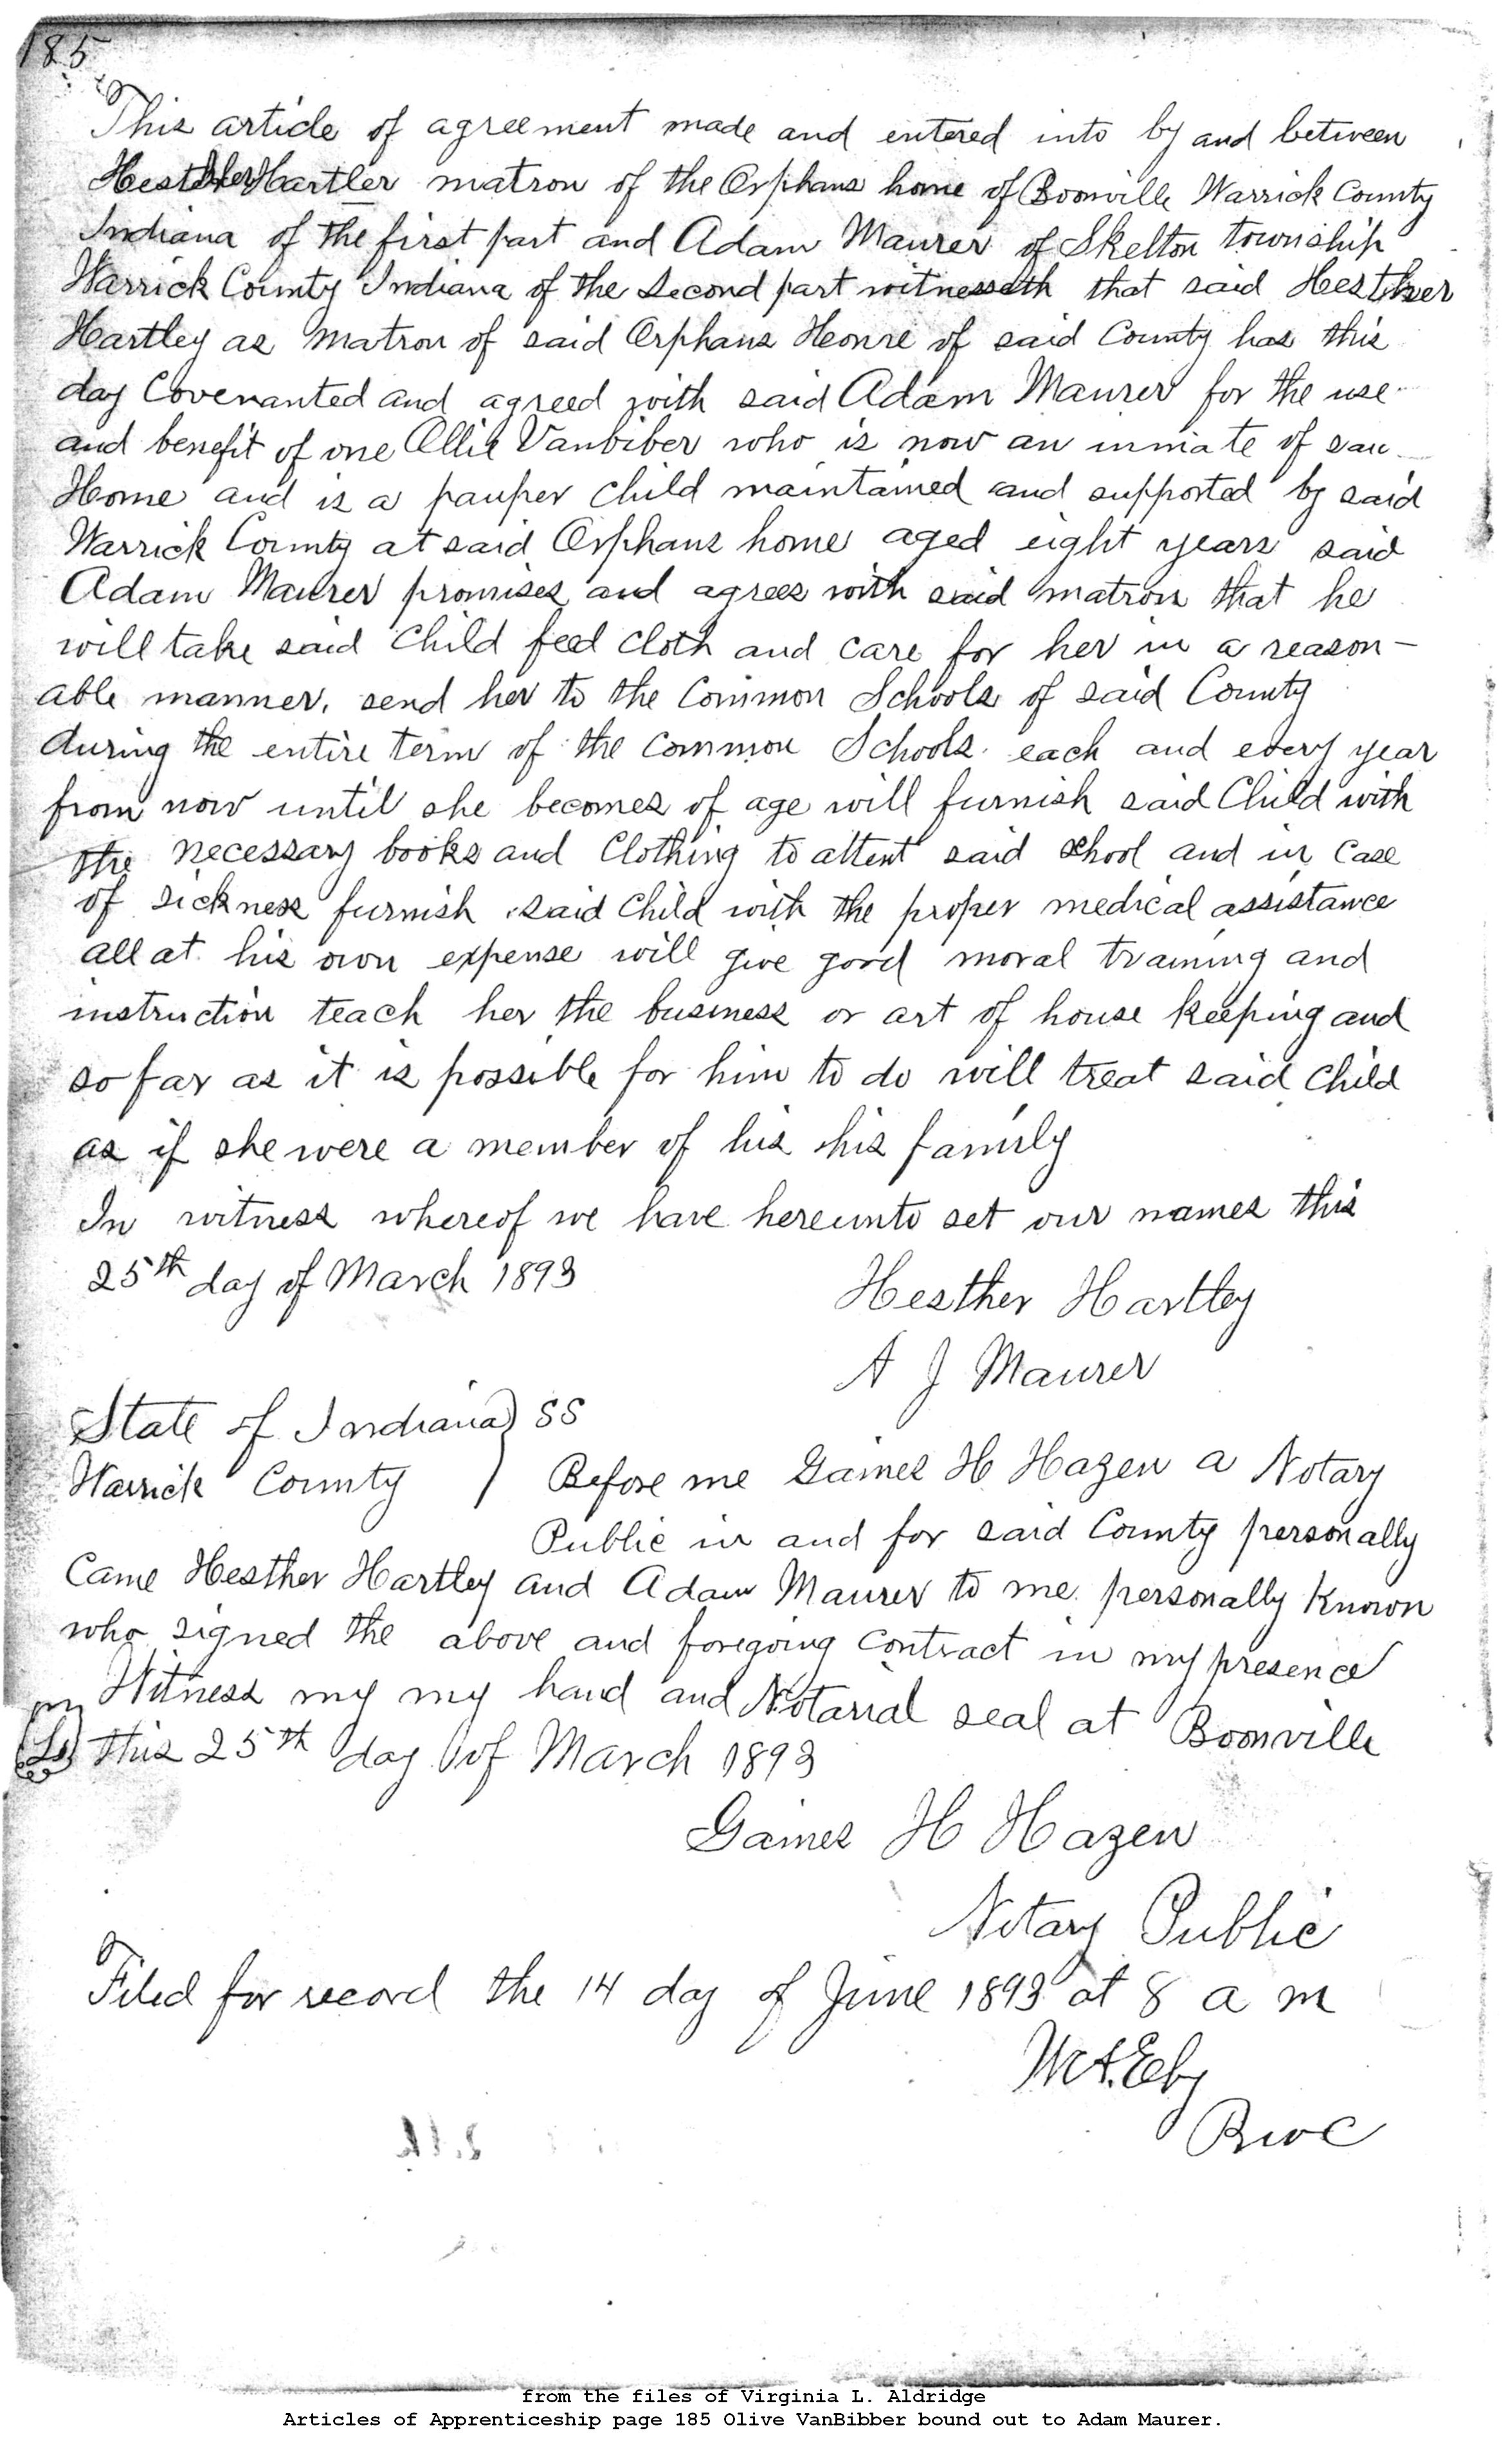 185
This article of agreement made and entered into by and between
Hesther Hartler matron of the Orphans home of Boonville Warrick County
Indiana of the first part and Adam Maurer of Skelton township
Warrick County Indiana of the second part witnesseth that said Hesther
Hartley as matron of said Orphans Home of said County has this
day Covenanted and agreed with said Adam Maurer for the use
and benefit of one Ollie Vanbiber who is now an inmate of sai
Home and is a pauper child maintained and supported by said
Warrick County at said Orphans home aged eight years said
Adam Maurer promises and agrees with said matron that he
will take said Child feed cloth and care for her in a reason-
able manner, send her to the Common Schools of said County
during the entire term of the common Schools each and every year
from now until she becomes of age will furnish said Child with
the necessary books and Clothing to attent said school and in case
of sickness furnish said Child with the proper medical assistance
all at his own expense will give good moral training and
instruction teach her the business or art of house keeping and
so far as it is possible for him to do will treat said child
as if she were a member of his his family
In witness whereof we have hereunto set our names this
25th day of March 1893
Hesther Hartley
A J Maurer
State of Indiana) SS
Warrick County ) Before me Gaines H Hazen a Notary
Public in and for said County personally
Came Hesther Hartley and Adam Maurer to me personally known
who signed the above and foregoing contract in my presence
Witness my my hand and Notarial seal at Boonville
LS this 25th day of March 1893
Gaines H Hazen
Notary Public
Filed for record the 14 day of June 1893 at 8 a m
W A. Eby
RWC
from the files of Virginia L. Aldridge
Articles of Apprenticeship page 185 Olive VanBibber bound out to Adam Maurer.